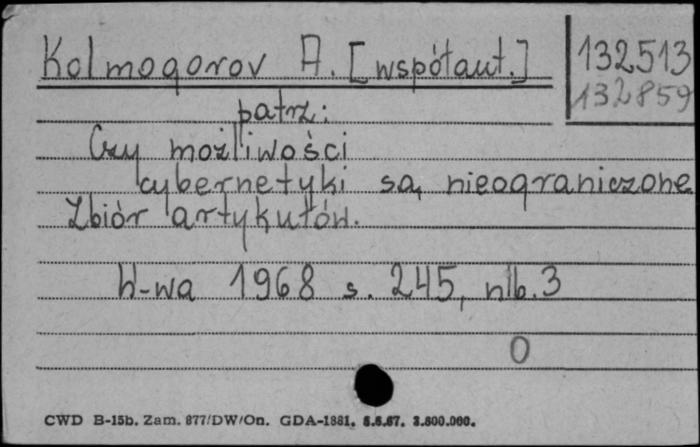 Kolmogorov A. [współaut.]
132513
132859
patrz:
Czy możliwości
cybernetyki są nieograniczone
Zbiór artykułów.
W-wa 1968 s. 245, nlb. 3
O
CWD B-15b. Zam. 877/DW/On. GDA-1881. 8.6.67. 3.800.000.